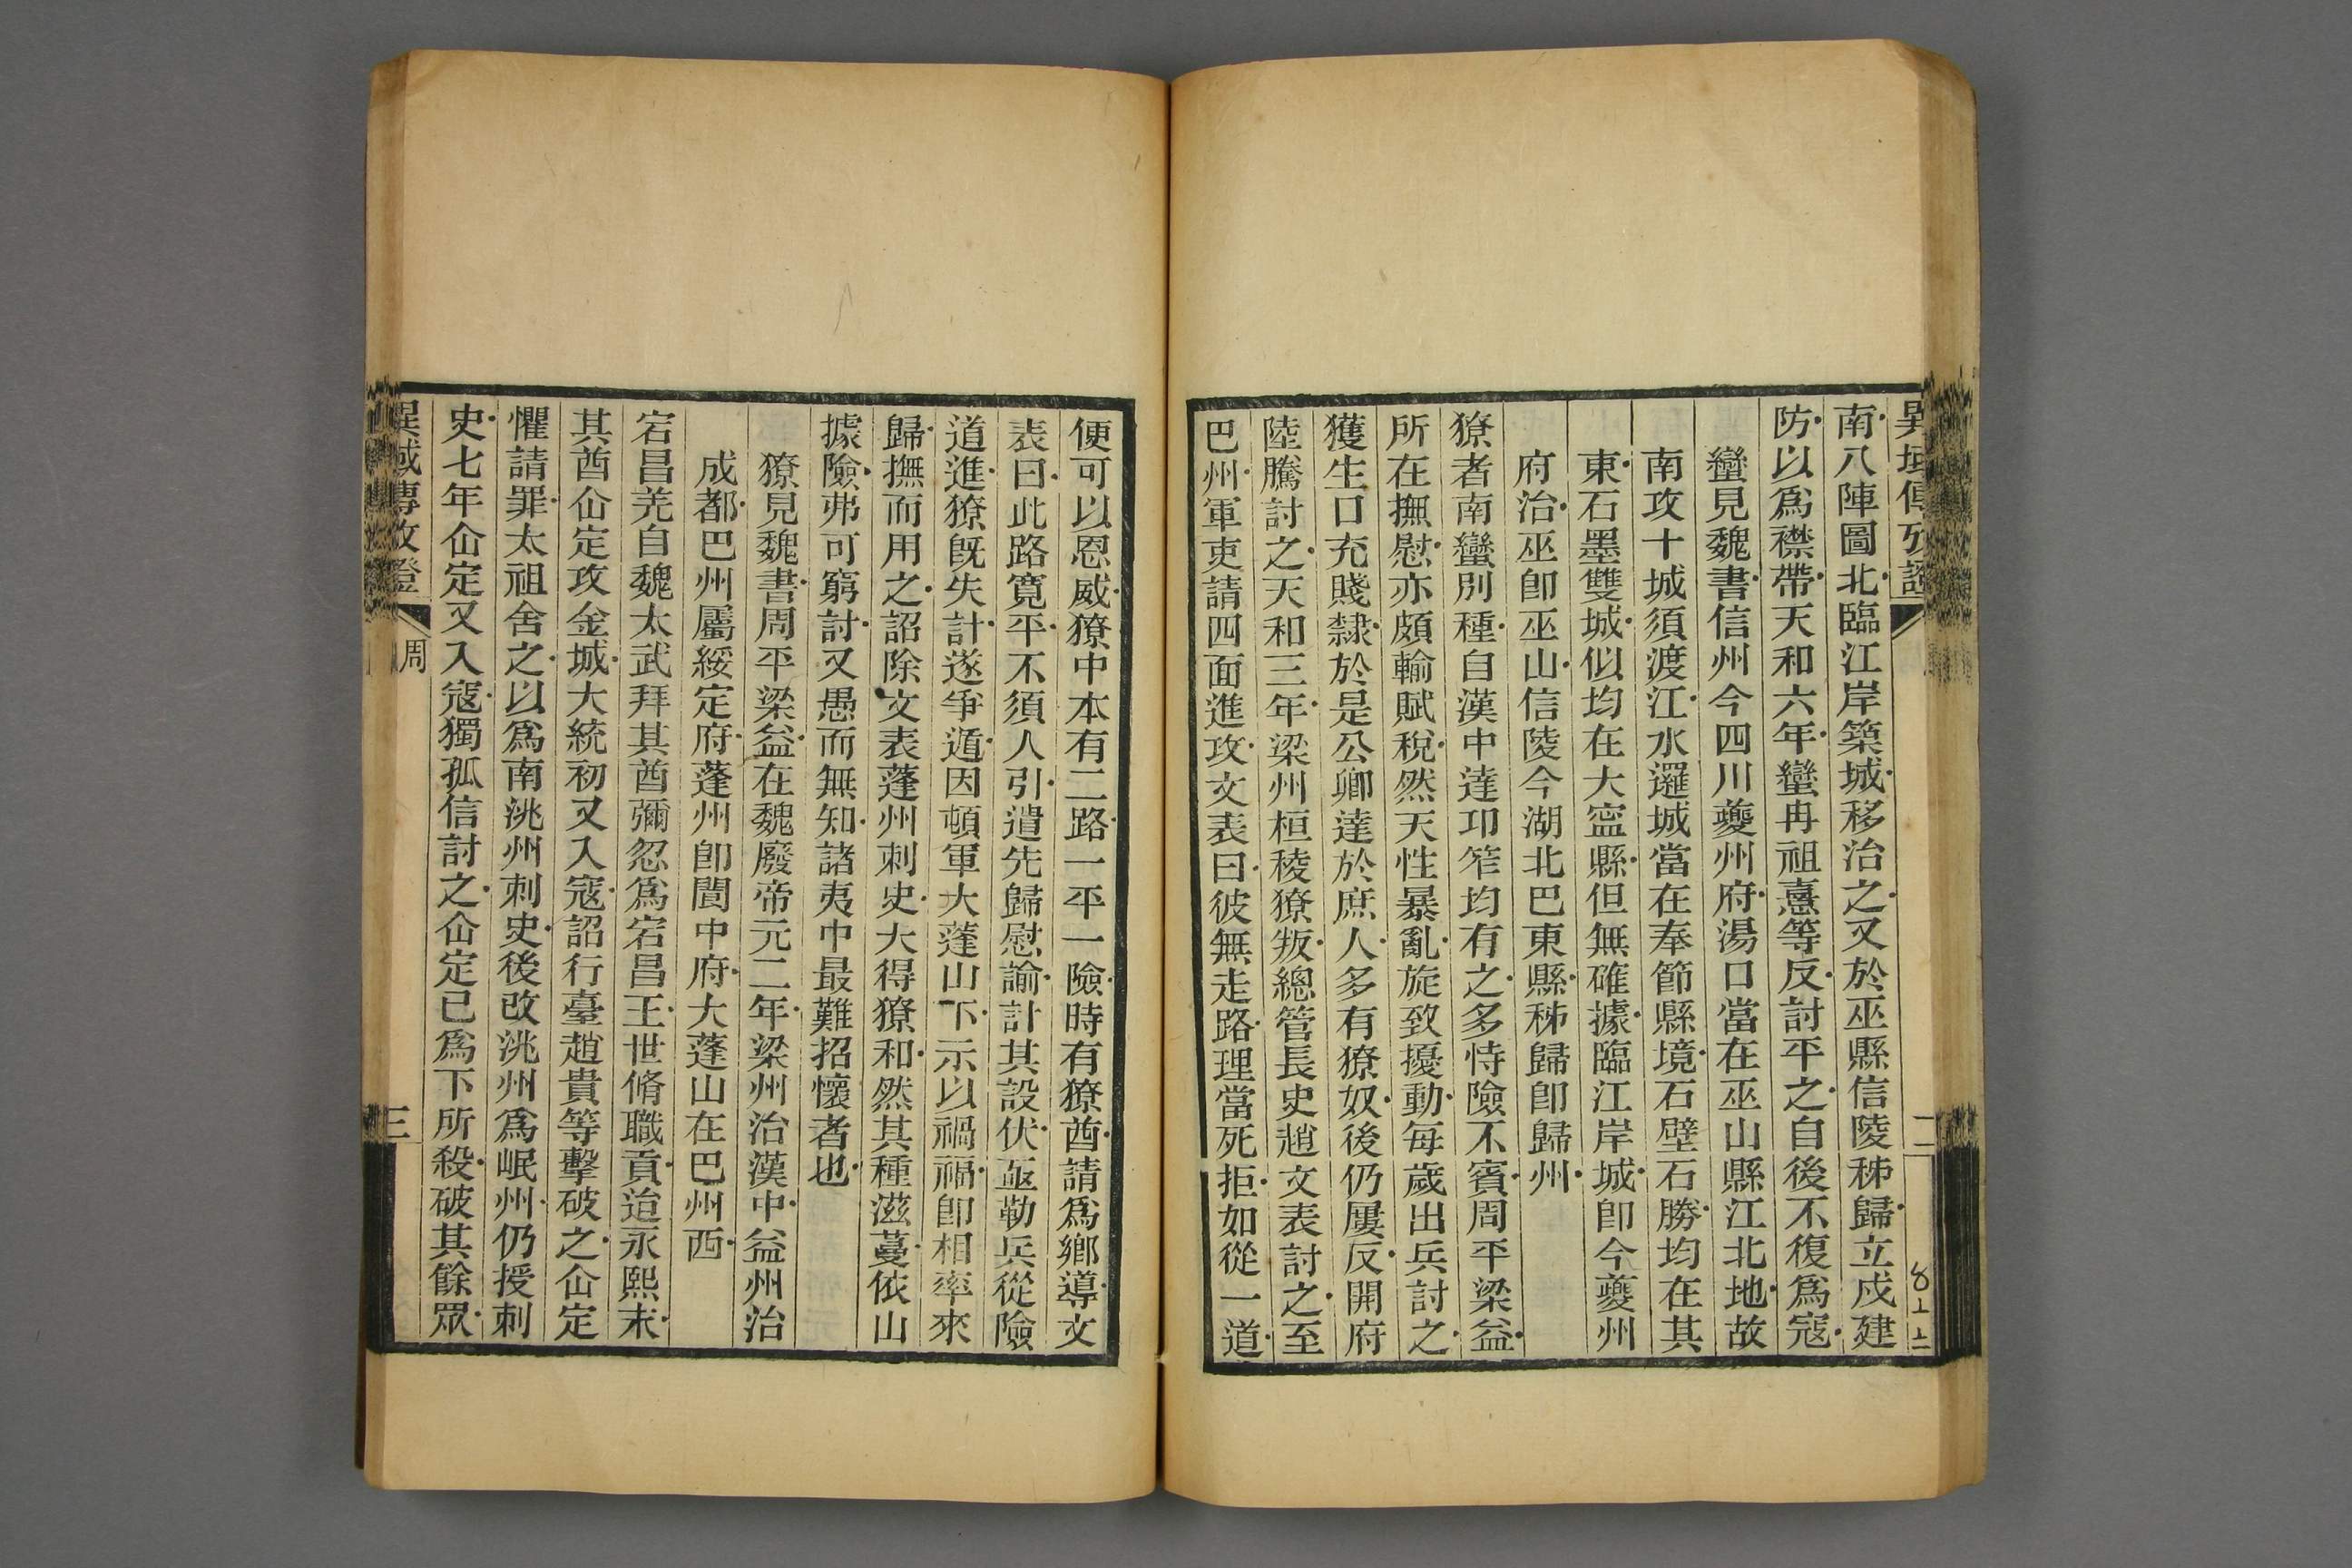 異域傳攷證
二
南八陣圖北臨江岸築城移治之又於巫縣信陵秭歸立戍建
防以爲襟帶天和六年蠻冉祖憙等反討平之自後不復爲寇
蠻見魏書信州今四川夔州府湯口當在巫山縣江北地故
南攻十城須渡江水邏城當在奉節縣境石壁石勝均在其
東石墨雙城似均在大寧縣但無確據臨江岸城卽今夔州
府治巫卽巫山信陵今湖北巴東縣秭歸卽歸州
獠者南蠻別種自漢中達卭笮均有之多恃險不賓周平梁益
所在撫慰亦頗輸賦稅然天性暴亂旋致擾動每歲出兵討之
獲生口充賤隸於是公卿達於庶人多有獠奴後仍屢反開府
陸騰討之天和三年梁州桓稜獠叛總管長史趙文表討之至
巴州軍吏請四面進攻文表曰彼無走路理當死拒如從一道
便可以恩威獠中本有二路一平一險時有獠酋請爲鄉導文
表曰此路寬平不須人引遣先歸慰諭計其設伏亟勒兵從險
道進獠旣失計遂爭遁因頓軍大蓬山下示以禍福卽相率來
歸撫而用之詔除文表蓬州刺史大得獠和然其種滋蔓依山
據險弗可窮討又愚而無知諸夷中最難招懷者也
獠見魏書周平梁益在魏廢帝元二年梁州治漢中益州治
成都巴州屬綏定府蓬州卽閬中府大蓬山在巴州西
宕昌羌自魏太武拜其酋彌忽爲宕昌王世脩職貢迨永熙末
其酋仚定攻金城大統初又入寇詔行臺趙貴等擊破之仚定
懼請罪太祖舍之以爲南洮州刺史後改洮州爲岷州仍授刺
史七年仚定又入寇獨孤信討之仚定已爲下所殺破其餘眾
異域傳攷證
周
三